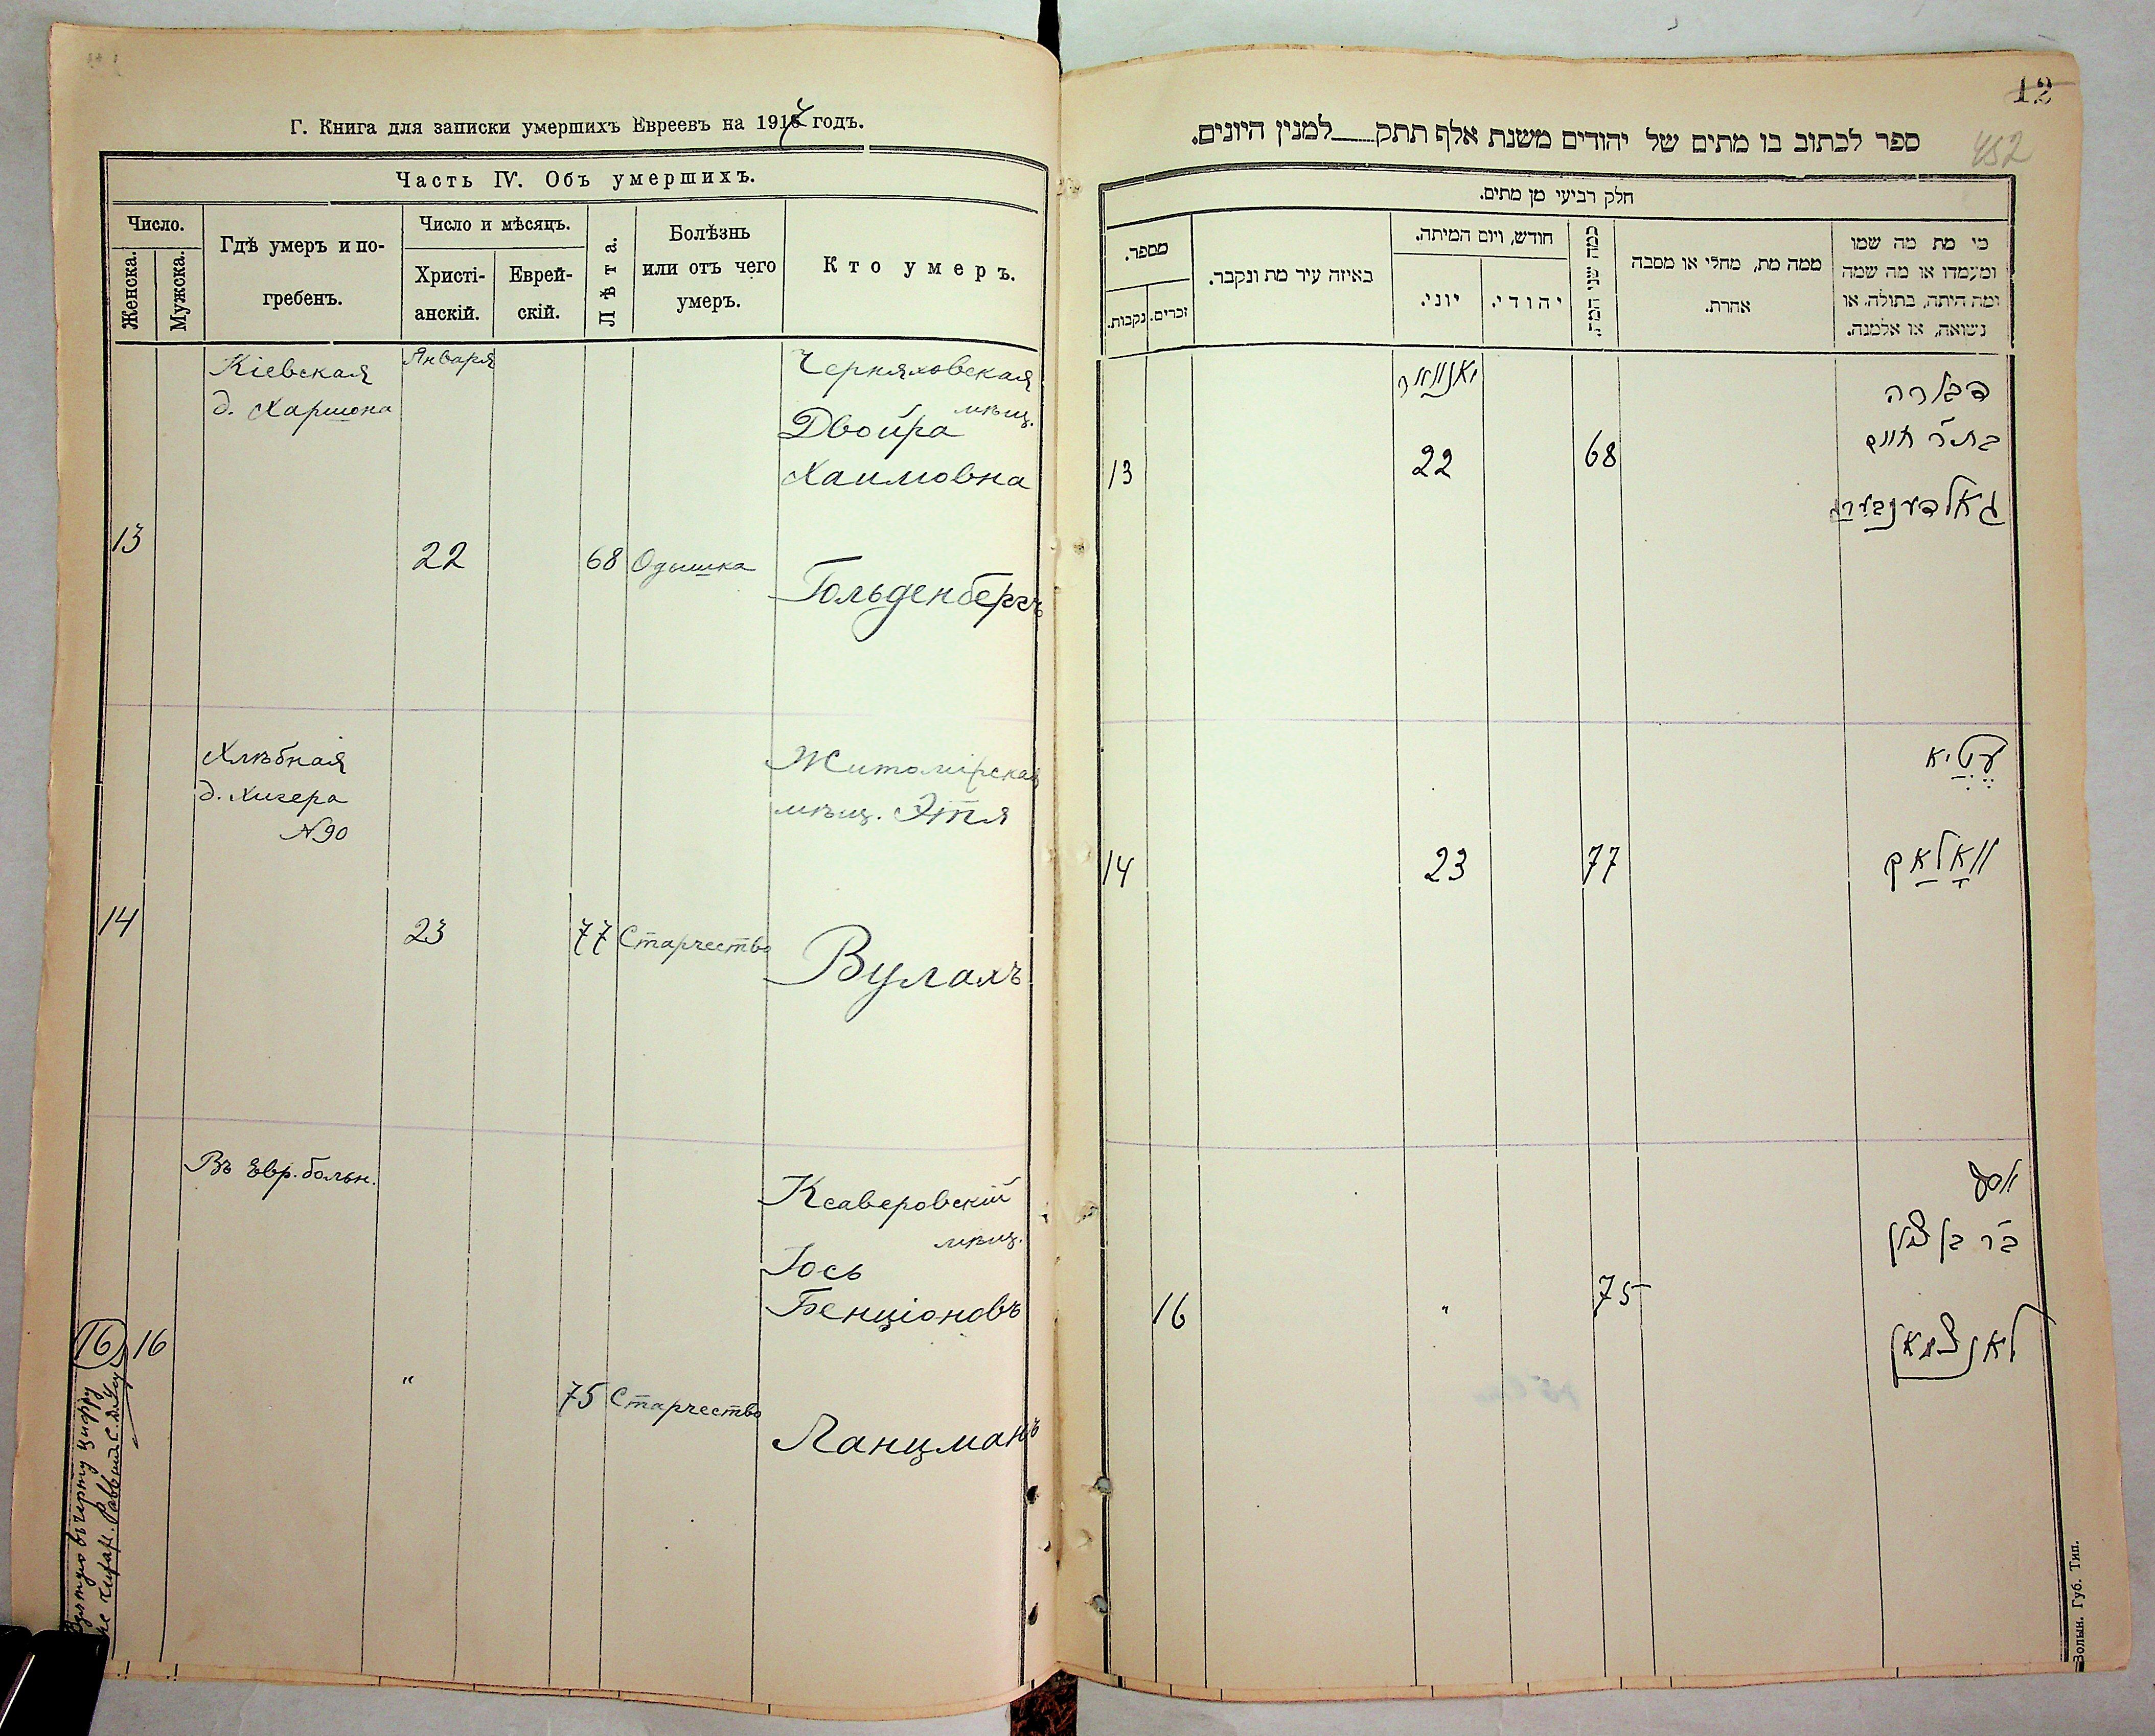 Г. Книга для записки умершихъ Евреевъ на 1914 годъ.
Часть IV. Объ умершихъ.
Число.
Женска.
Мужска.
Гдѣ умеръ и по-
гребенъ.
Число и мѣсяцъ.
Христі-
анскій.
Еврей-
скій.
Лѣта.
Болѣзнь
или отъ чего
умеръ.
Кто умеръ.
Кіевская
д. Харшона
Января
Черняховская
мѣщ.
Двойра
Хаимовна
13
22
68
Одышка
Гольденбергъ
Хлѣбная
д. Хигера
№ 90
Житомірская
мѣщ. Этя
14
23
77
Старчество
Вулахъ
Въ Евр. больн.
Ксаверовскій
мѣщ.
Іось
Бенціоновъ
16
16
"
75
Старчество
Ланцманъ
цифру
не читать. Раввинъ
12
452
ספר לכתוב בו מתים של יהודים משנת אלף תתק למנין היונים.
חלק רביעי מן מתים.
מספר.
נקבות.
זכרים.
באיזה עיר מת ונקבר.
חודש, ויום המיתה.
יוני.
יהודי.
כמה שני המת.
ממה מת, מחלי או מסבה
אחרת.
מי מת מה שמו
ומעמדו או מה שמה
ומה היתה, בתולה, או
נשואה, או אלמנה.
יאנוואר
דבורה
בת״ר חיים
גאלדענבערג
13
22
68
עטיא
וואלאך
14
23
77
יוסף
ב״ר בן ציון
לאנצמאן
16
"
75
Волын. Губ. Тип.